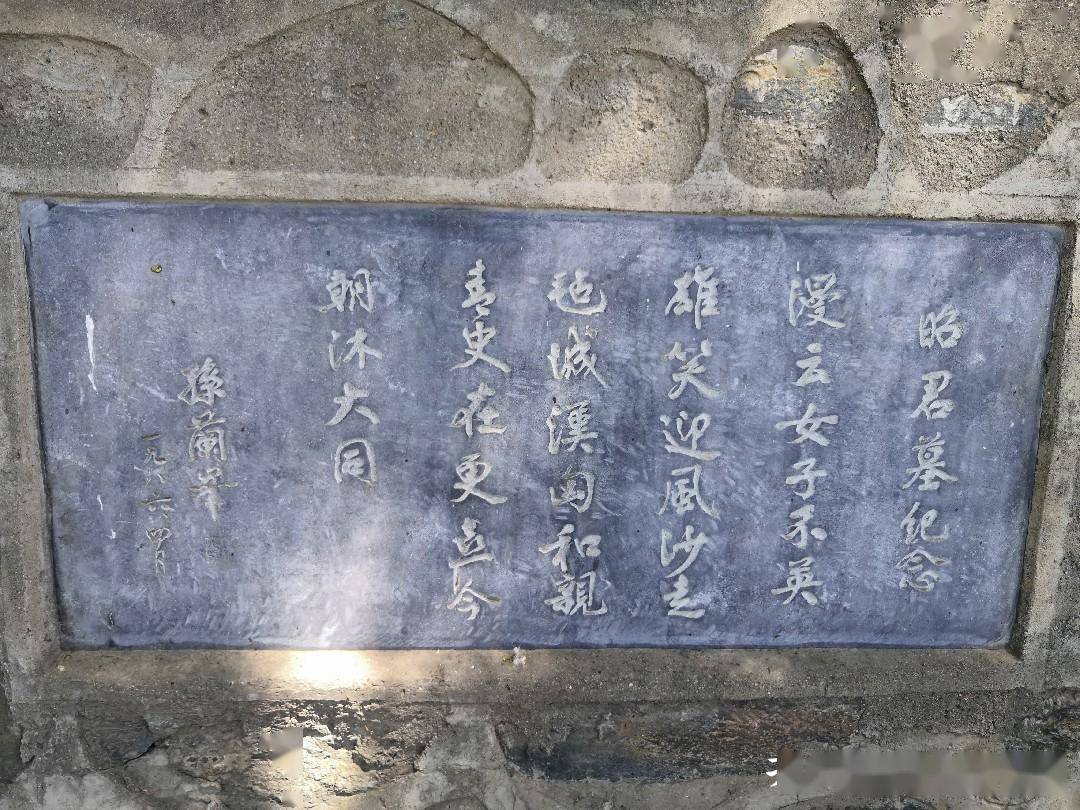 昭君墓紀念
漫云女子不英
雄笑迎風沙走
毡城漢匈和親
青史在更今
朝沐大同
孫蘭峯
一九八六.四月